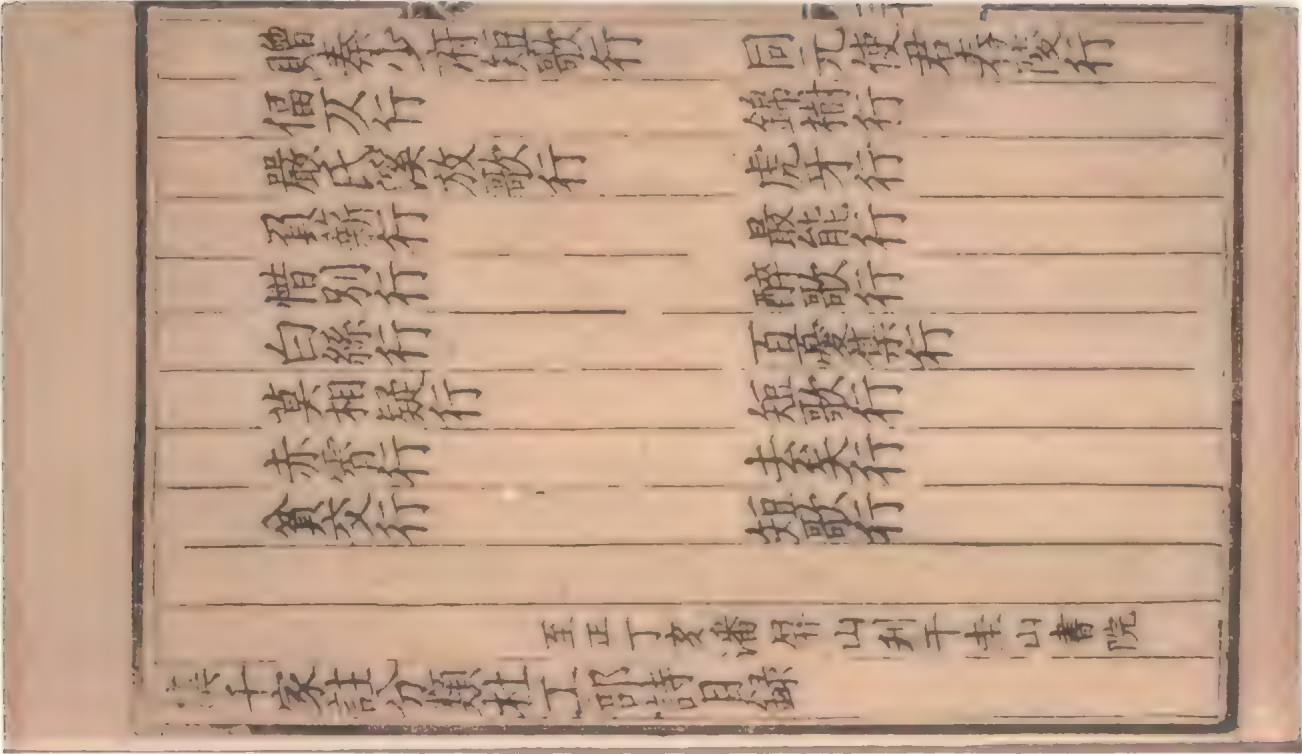 贈秦少府短歌行　同元使君舂陵行
偪仄行　錦樹行
嚴氏溪放歌行　虎牙行
負薪行　最能行
惜別行　醉歌行
白絲行　百憂集行
莫相疑行　短歌行
赤霄行　去矣行
貧交行　短歌行
至正丁亥潘屏山刊于圭山書院
集千家註分類杜工部詩目錄